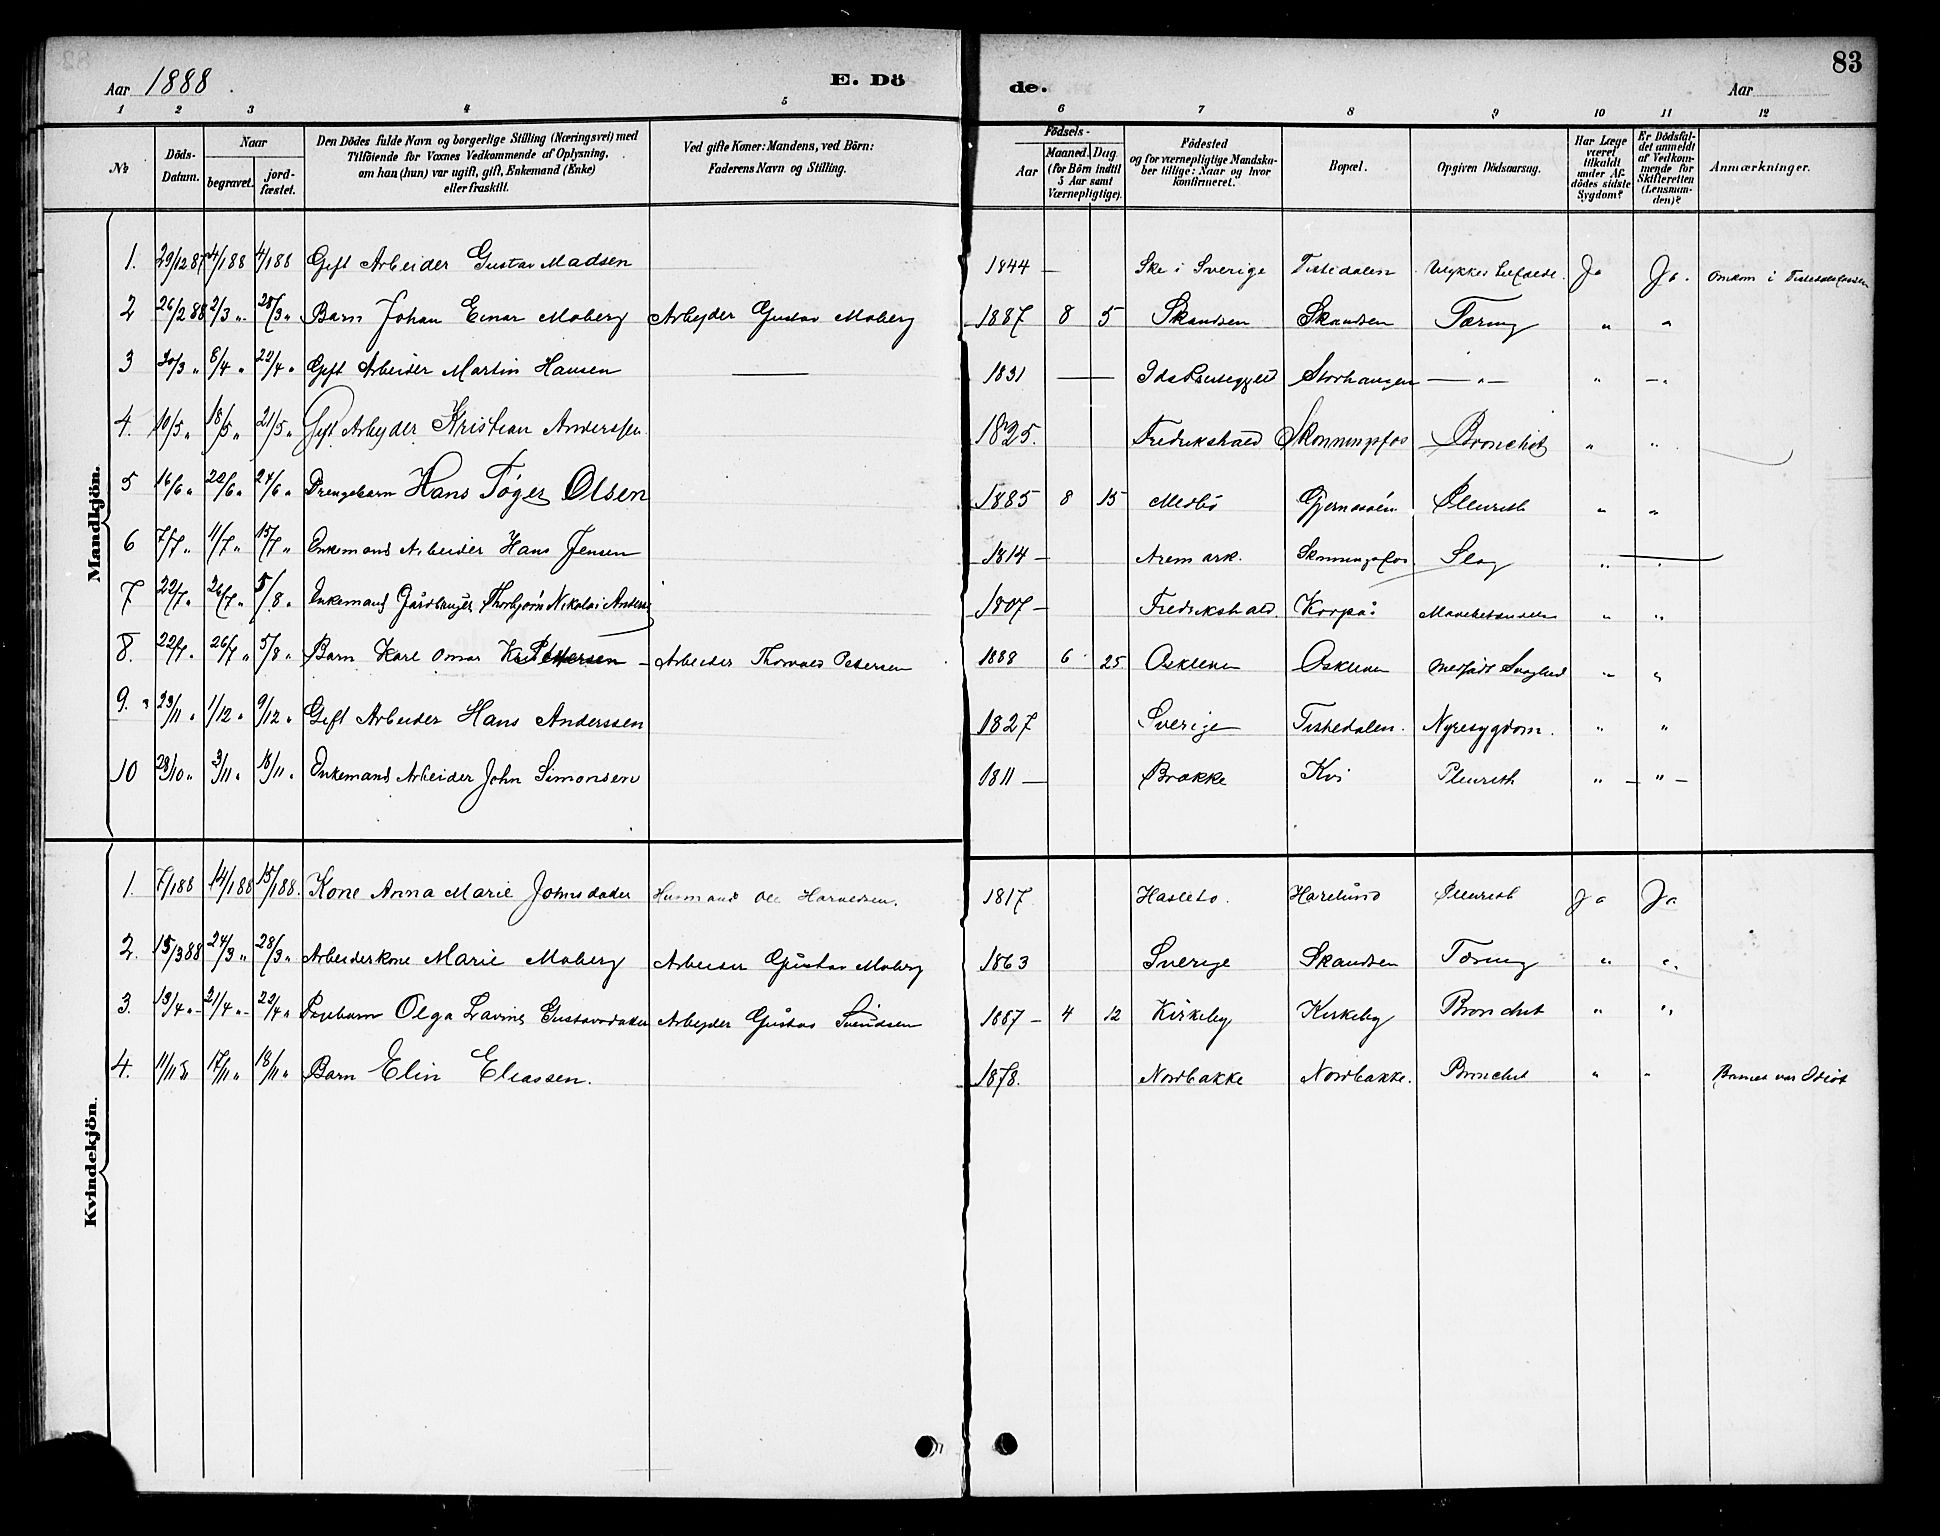 83
Aar 1888. E. Döde. Aar
1 2 3 4 5 6 7 8 9 10 11 12
No
Döds-Datum.
Naar
begravet.
jordfæstet.
Den Dödes fulde Navn og borgerlige Stilling (Næringsvei) med
Tilföiende for Voxnes Vedkommende af Oplysning,
om han (hun) var ugift, gift, Enkemand (Enke)
eller fraskilt.
Ved gifte Koner: Mandens, ved Börn:
Faderens Navn og Stilling.
Födsels-
Aar
Maaned. Dag.
(for Börn indtil
5 Aar samt
Værnepligtige).
Födested
og for værnepligtige Mandskaber tillige: Naar og hvor
konfirmeret.
Bopæl.
Opgiven Dödsaarsag.
Har Læge
været
tilkaldt
under Afdödes sidste
Sygdom?
Er Dödsfaldet anmeldt
af Vedkommende for
Skifteretten
(Lensmanden)?
Anmærkninger.
Mandkjön.
1. 29/12 87 4/1 88 4/1 88 Gift Arbeider Gustav Madsen 1844 — Ske i Sverige Tistedalen Ja Ja. Omkom i
2 26/2 88 2/3 „ 28/3 „ Barn Johan Einar Moberg Arbejder Gustav Moberg 1887 8 5 Skandsen Skandsen Tæring „ „
3 30/3 „ 8/4 „ 22/4 „ Gift Arbeider Martin Hansen — 1831 — Storhaugen — „ — „ — „
4. 10/5 „ 18/5 „ 21/5 „ Gift Arbejder Kristian Anderssen 1825. Fredrikshald Skonningsfos Bronchit „ „
5 16/6 „ 22/6 „ 24/6 „ Drengebarn Hans Töger Olsen 1885 8 15 Medbö Pleurith „ „
6 7/7 „ 11/7 „ 15/7 „ Enkemand Arbeider Hans Jensen 1814 — Aremark. Slag „ „
7 22/7 „ 26/7 „ 5/8 „ Enkemand Gårdbruger Thorbjörn Nikolai Anders 1807 — Fredrikshald. Korpås „ „
8. 22/7 „ 26/7 „ 5/8 „ Barn Karl Omar Pettersen — Arbeider Thorvald Petersen 1888 6 25 Medfödt Svaghed „ „
9. 23/11 „ 1/12 „ 9/12 „ Gift Arbeider Hans Anderssen 1827 Sverige Tistedalen. Nyresygdom. „ „
10 29/10 „ 3/11 „ 18/11 „ Enkemand Arbeider John Simonsen 1811 — Brække Kvi Pleurith „ — „ —
Kvindekjön.
1. 7/1 88 14/1 88 15/1 88. Kone Anna Marie Johnsdatter Husmand Ole Haraldsen. 1817. Haslebo. Harelund Pleurith Ja Ja
2. 15/3 88 24/3 „ 28/3 „ Arbeiderkone Marie Moberg Arbeider Gustav Moberg 1863 Sverige Skandsen Tæring „ „
3. 13/4 „ 21/4 „ 22/4 „ Pigebarn Olga Lavine Gustavsdatter Arbejder Gustav Svendsen 1887 — 4 12 Kirkeby Kirkeby Bronchit „ „
4. 11/11 „ 17/11 „ 18/11 „ Barn Elin Eliassen. 1878. Nordbakke Nordbakke. Bronchit „ „ Barnet var Idiot